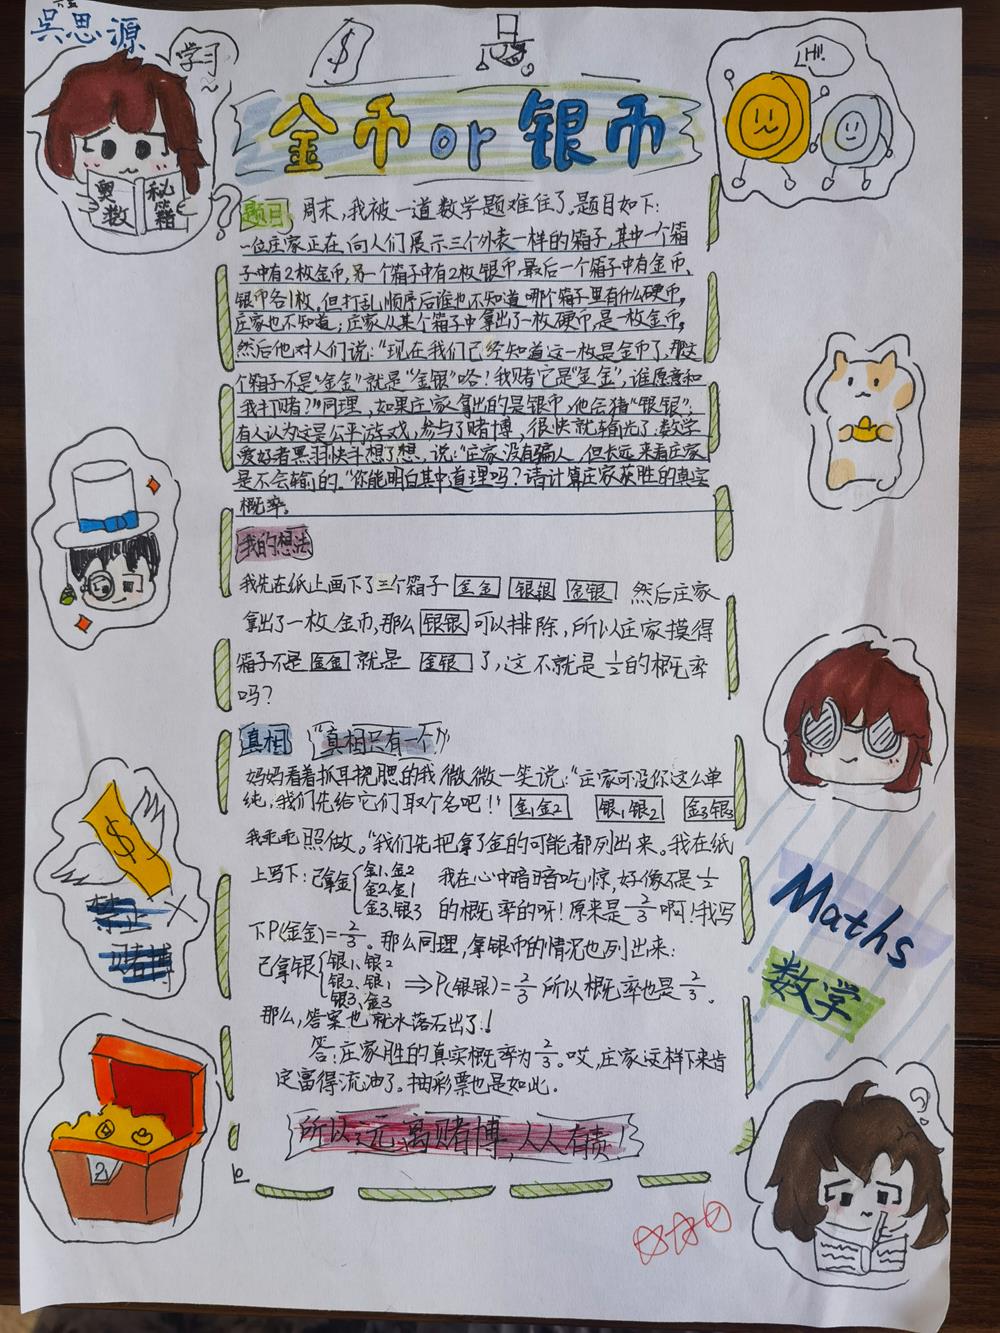 吴思源
学习~
奥数
秘籍
$
Hi!
金币or银币
题目 周末,我被一道数学题难住了。题目如下:
一位庄家正在向人们展示三个外表一样的箱子,其中一个箱
子中有2枚金币,另一个箱子中有2枚银币,最后一个箱子中有金币、
银币各1枚,但打乱顺序后谁也不知道哪个箱子里有什么硬币,
庄家也不知道;庄家从某个箱子中拿出了一枚硬币是一枚金币,
然后他对人们说:“现在我们已经知道这一枚是金币了,那这
个箱子不是“金金”就是“金银”咯!我赌它是“金金”,谁愿意和
我打赌?”同理,如果庄家拿出的是银币,他会猜“银银”;
有人认为这是公平游戏,参与了赌博,很快就输光了。数学
爱好者黑羽快斗想了想,说:“庄家没有骗人,但长远来看庄家
是不会输的。”你能明白其中道理吗?请计算庄家获胜的真实
概率。
我的想法
我先在纸上画下了三个箱子 金金 银银 金银 然后庄家
拿出了一枚金币,那么 银银 可以排除,所以庄家摸得
箱子不是 金金 就是 金银 了,这不就是1/2的概率
吗?
真相 “真相只有一个!”
妈妈看着抓耳挠腮的我微微一笑说:“庄家可没你这么单
纯,我们先给它们取个名吧!” 金1金2 银1银2 金3银3
我乖乖照做。“我们先把拿了金的可能都列出来。我在纸
上写下:已拿金{金1、金2 我在心中暗暗吃惊,好像不是1/2
金2、金1
金3、银3 的概率的呀!原来是2/3啊!我写
下P(金金)=2/3。那么同理,拿银币的情况也列出来:
已拿银{银1、银2
银2、银1 ⇒P(银银)=2/3 所以概率也是2/3。
银3、金3
那么,答案也就水落石出了!
答:庄家胜的真实概率为2/3。哎,庄家这样下来肯
定富得流油了。抽彩票也是如此。
所以:远离赌博,人人有责!
$
禁止
赌博
Maths
数学